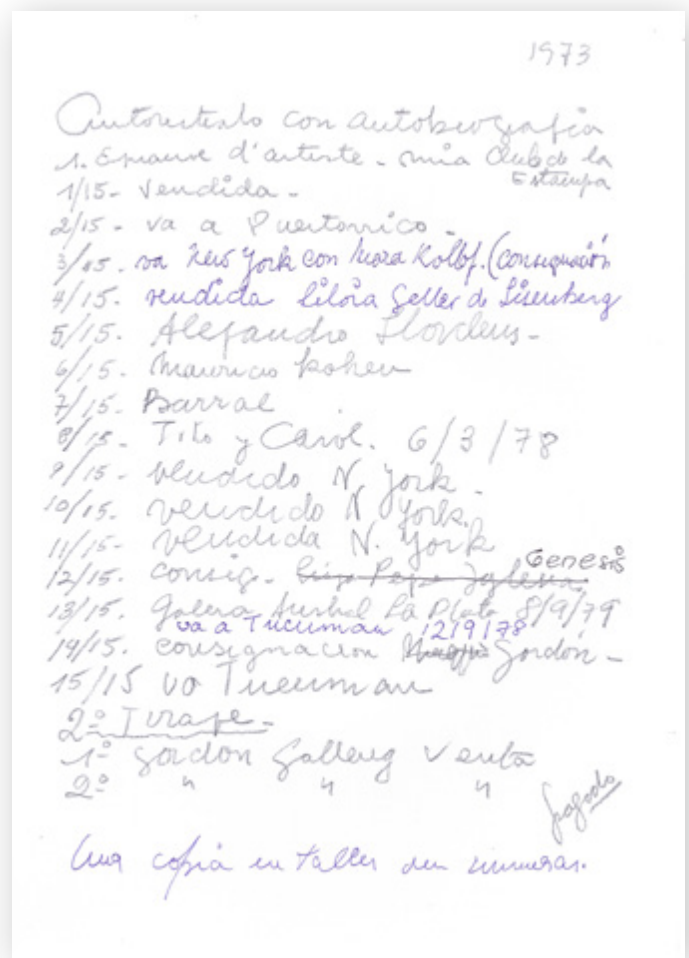 1973
Autorretrato con autobiografía
1. Epreuve d'artiste - mia Club de la
Estampa
1/15 - Vendida -
2/15 - va a Puertorrico -
3/15 - va New York con Mara Kolbf. (consignación
4/15. vendida Silvia Geller de Lisenberg
5/15. Alejandro
6/15. Mauricio Kohen
7/15. Barral
8/15 - Tito y Carol. 6/3/78
9/15 - vendido N. York -
10/15. vendido N York.
11/15 - vendida N. York
12/15. consig - Genesis
13/15. Galeria Austral La Plata 8/9/79
va a Tucuman 12/9/78
14/15. consignacion Gordon -
15/15 va Tucuman
2º Tiraje -
1º Gordon Gallery Venta
2º " " "
pagado
Una copia en taller sin numerar.